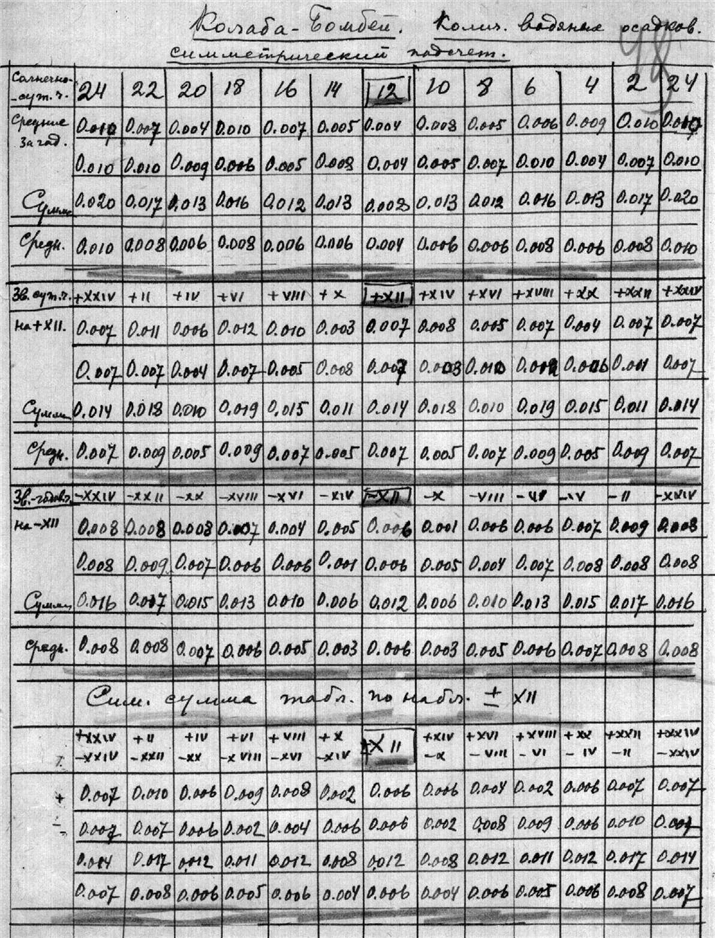 Колаба-Бомбей. Колич. водяных осадков.
симметрический подсчет.
98
Солнечно-сут. ч. 24 22 20 18 16 14 12 10 8 6 4 2 24
Средние за год. 0.010 0.007 0.004 0.010 0.007 0.005 0.004 0.008 0.005 0.006 0.009 0.010 0.010
0.010 0.010 0.009 0.006 0.005 0.008 0.004 0.005 0.007 0.010 0.004 0.007 0.010
Сумм. 0.020 0.017 0.013 0.016 0.012 0.013 0.008 0.013 0.012 0.016 0.013 0.017 0.020
Средн. 0.010 0.008 0.006 0.008 0.006 0.006 0.004 0.006 0.006 0.008 0.006 0.008 0.010
Зв. сут. ч. +XXIV +II +IV +VI +VIII +X +XII +XIV +XVI +XVIII +XX +XXII +XXIV
на +XII. 0.007 0.011 0.006 0.012 0.010 0.003 0.007 0.008 0.005 0.007 0.004 0.007 0.007
0.007 0.007 0.004 0.007 0.005 0.008 0.007 0.003 0.010 0.006 0.007
Сумм. 0.014 0.018 0.010 0.019 0.015 0.011 0.014 0.018 0.010 0.019 0.015 0.011 0.014
Средн. 0.007 0.009 0.005 0.009 0.007 0.005 0.007 0.005 0.007 0.009 0.005 0.009 0.007
-XXIV -XXII -XX -XVIII -XVI -XIV -XII -X -VIII -VI -IV -II -XXIV
на -XII 0.008 0.008 0.008 0.007 0.004 0.005 0.006 0.001 0.006 0.006 0.007 0.009 0.008
0.008 0.009 0.007 0.006 0.006 0.001 0.006 0.005 0.004 0.007 0.008 0.008 0.008
Сумм. 0.016 0.007 0.015 0.013 0.010 0.006 0.012 0.006 0.010 0.013 0.015 0.017 0.016
Средн. 0.008 0.008 0.007 0.006 0.005 0.003 0.006 0.003 0.005 0.006 0.007 0.008 0.008
Сим. сумма табл. по набл. ± XII
+XXIV +II +IV +VI +VIII +X ±XII +XIV +XVI +XVIII +XX +XXII +XXIV
-XXIV -XXII -XX -XVIII -XVI -XIV -X -VIII -VI -IV -II -XXIV
+ 0.007 0.010 0.006 0.009 0.008 0.002 0.006 0.006 0.004 0.002 0.006 0.007 0.007
- 0.007 0.007 0.006 0.002 0.004 0.006 0.006 0.002 0.008 0.009 0.006 0.010 0.007
0.014 0.017 0.012 0.011 0.012 0.008 0.012 0.008 0.012 0.011 0.012 0.017 0.014
0.007 0.008 0.006 0.005 0.006 0.004 0.006 0.004 0.006 0.005 0.006 0.008 0.007